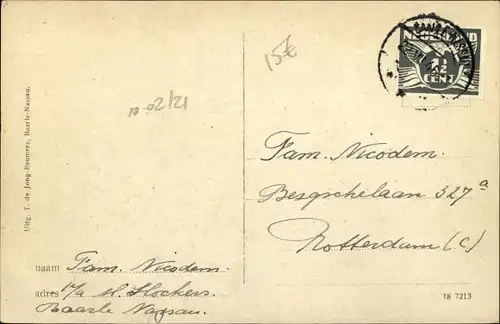 NEDERLAND
1½
CENT
15€
10-02/21
Fam. Nicodem.
Bergschelaan 327a
Rotterdam (C)
Uitg. T. de Jong-Danners, Baarle-Nassau.
naam Fam. Nicodem.
adres p/a H. Hockers.
Baarle Nassau.
18 7213